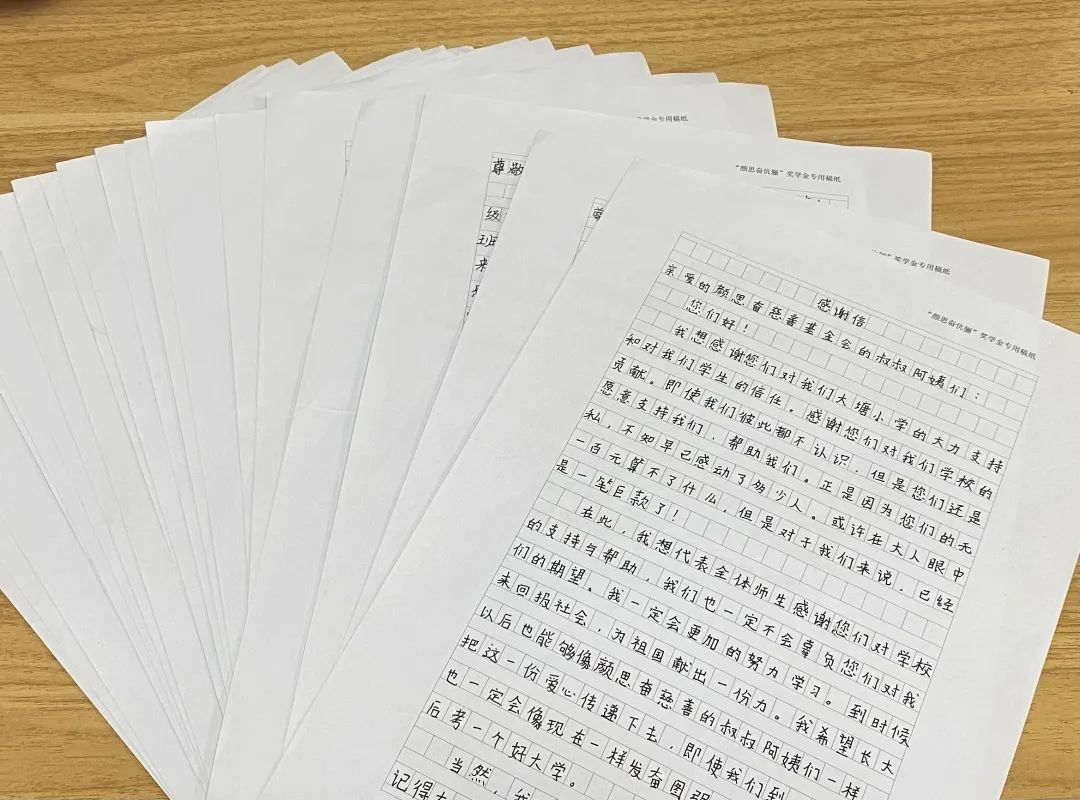 学金专用稿纸
"颜思奋伉俪"奖学金专用稿纸
奖学金专用稿纸
"颜思奋伉俪"奖学金专用稿纸
尊敬
级
班
来
感谢信
亲爱的颜思奋慈善基金会的叔叔阿姨们：
您们好！
我想感谢您们对我们大塘小学的大力支持
和对我们学生的信任。感谢您们对我们学校的
贡献。即使我们彼此都不认识，但是您们还是
愿意支持我们，帮助我们。正是因为您们的无
私，不知早已感动了多少人。或许在大人眼中
一百元算不了什么，但是对于我们来说，已经
是一笔巨款了！
在此，我想代表全体师生感谢您们对学校
的支持与帮助，我们也一定不会辜负您们对我
们的期望。我一定会更加的努力学习。到时候
来回报社会，为祖国献出一份力。我希望长大
以后也能够像颜思奋慈善的叔叔阿姨们一样
把这一份爱心传递下去，即使我们到
也一定会像现在一样发奋图强
后考一个好大学。
当然，我
记得